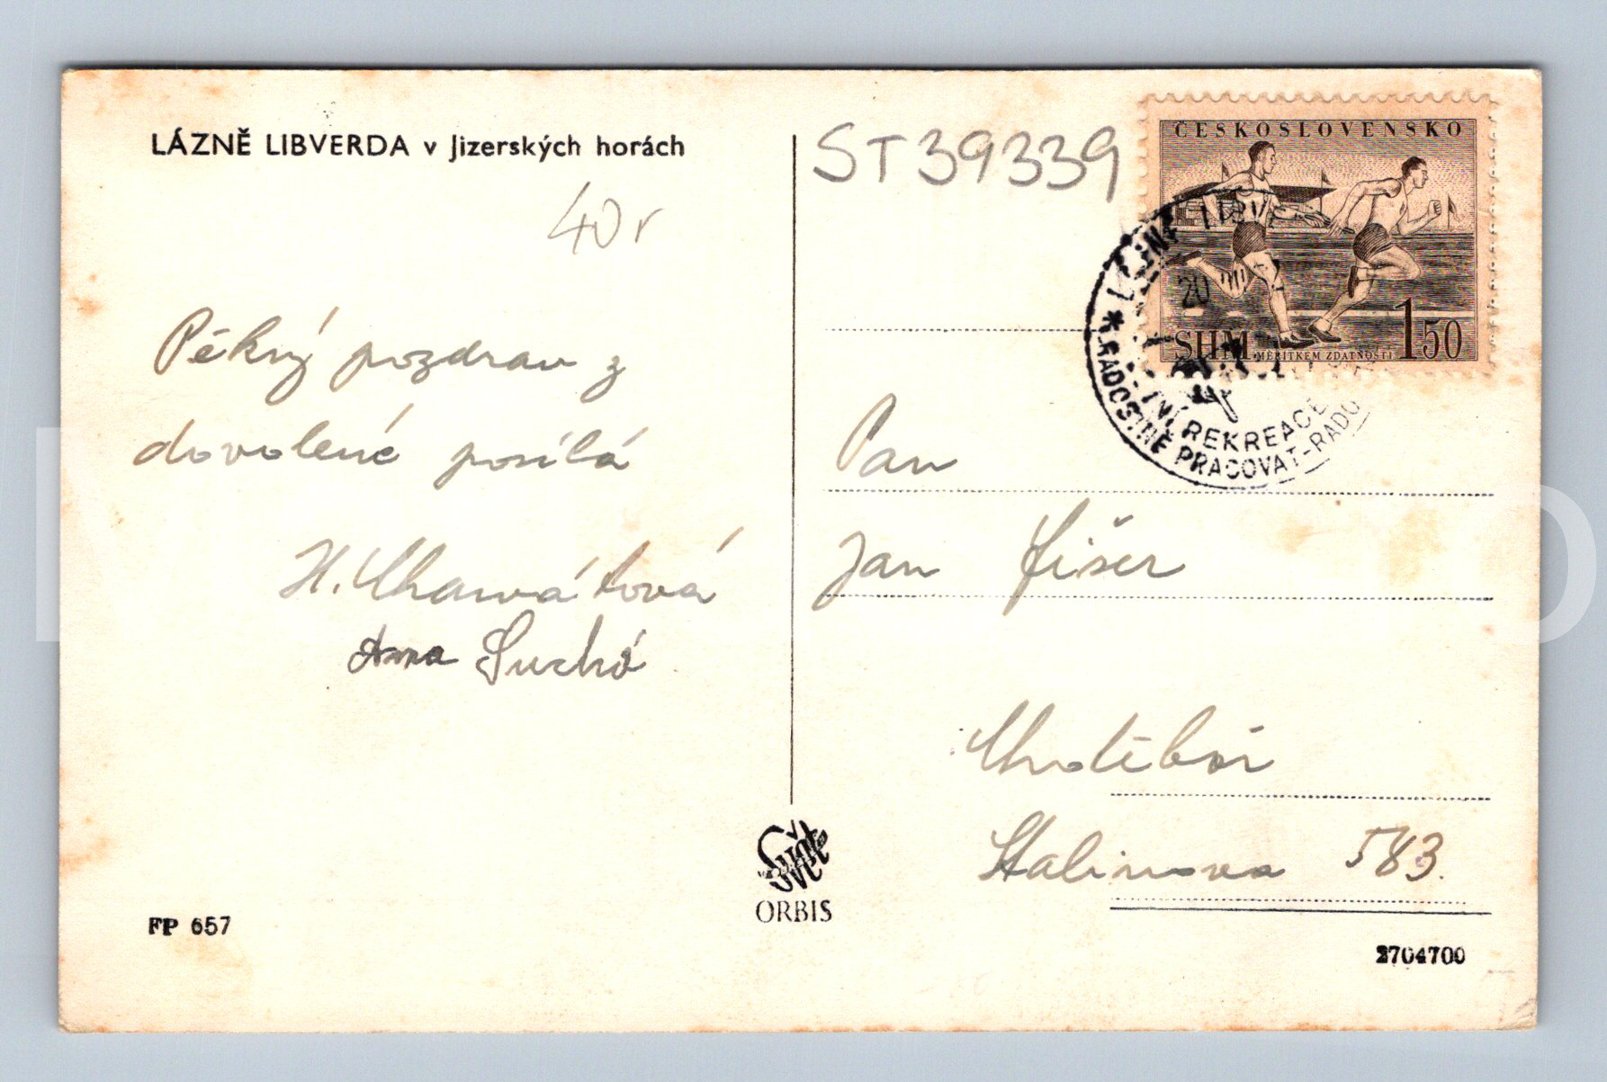 LÁZNĚ LIBVERDA v Jizerských horách
40 r
Pěkný pozdrav z
dovolené posílá
H. Charvátová
Anna Suchá
FP 657
SVĚT
ORBIS
ST39339
ČESKOSLOVENSKO
SHM MĚŘÍTKEM ZDATNOSTI 1 50
LÁZNĚ
20
REKREACE
RADOSTNĚ PRACOVAT-RADO
Pan
Jan Fišer
Chotěboř
Stalinova 583.
2704700